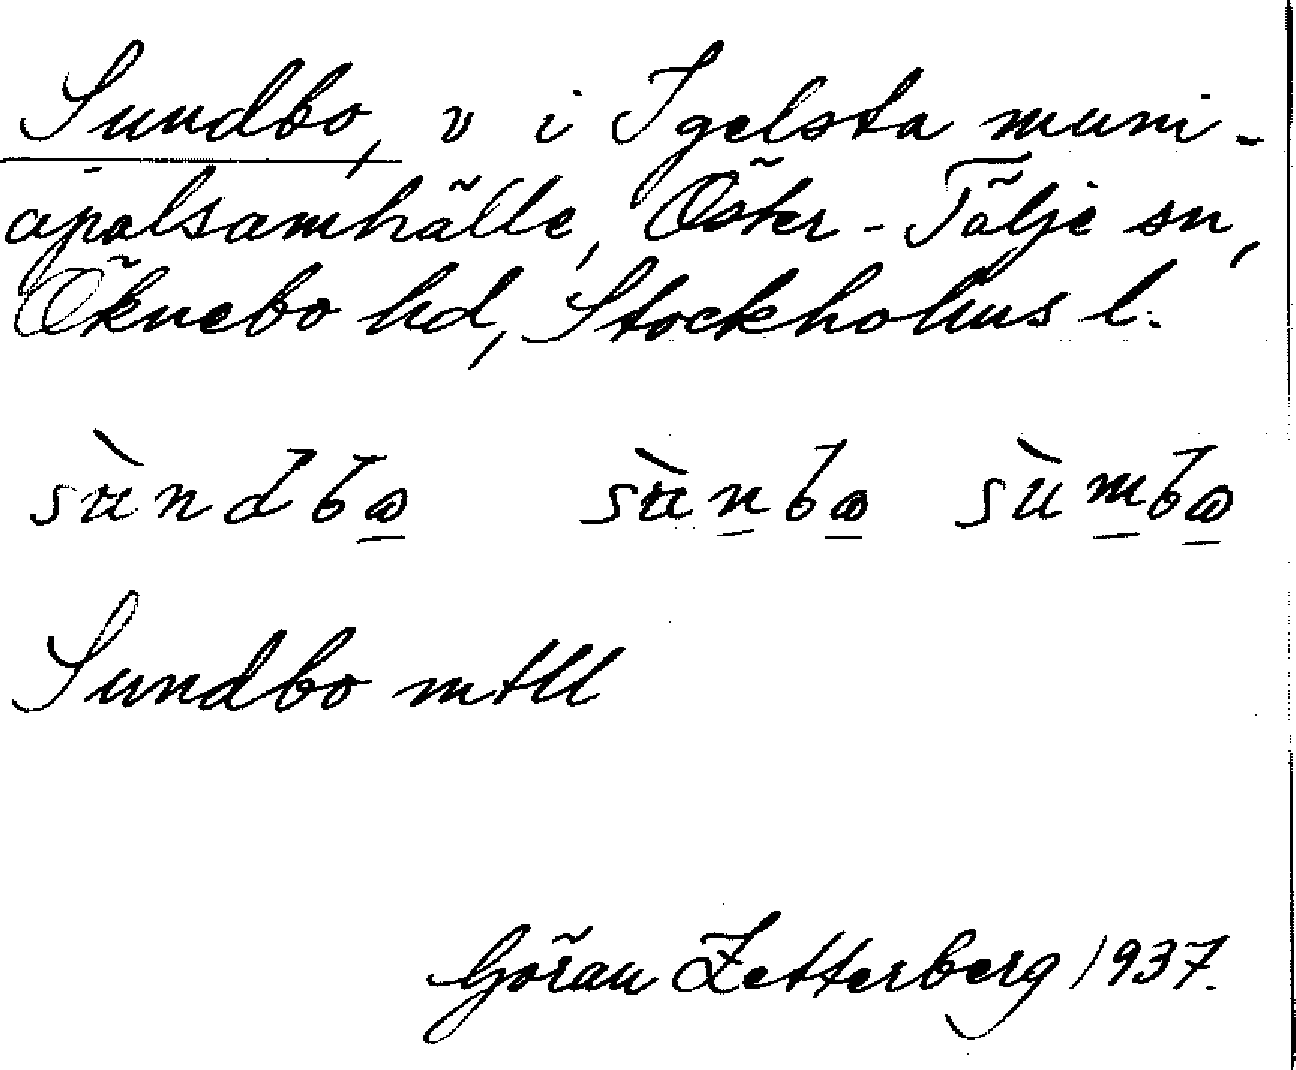 Sundbo, v i Igelsta muni-
cipalsamhälle, Öster-Tälje sn,
Öknebo hd, Stockholms l.
sùndbω sùnbω sùmbω
Sundbo mtll
Göran Zetterberg 1937.